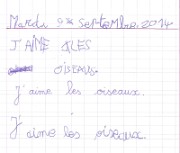 Mardi 9 septembre 2014
J'AIME LES
OISEAUX.
J'aime les oiseaux.
J'aime les oiseaux.